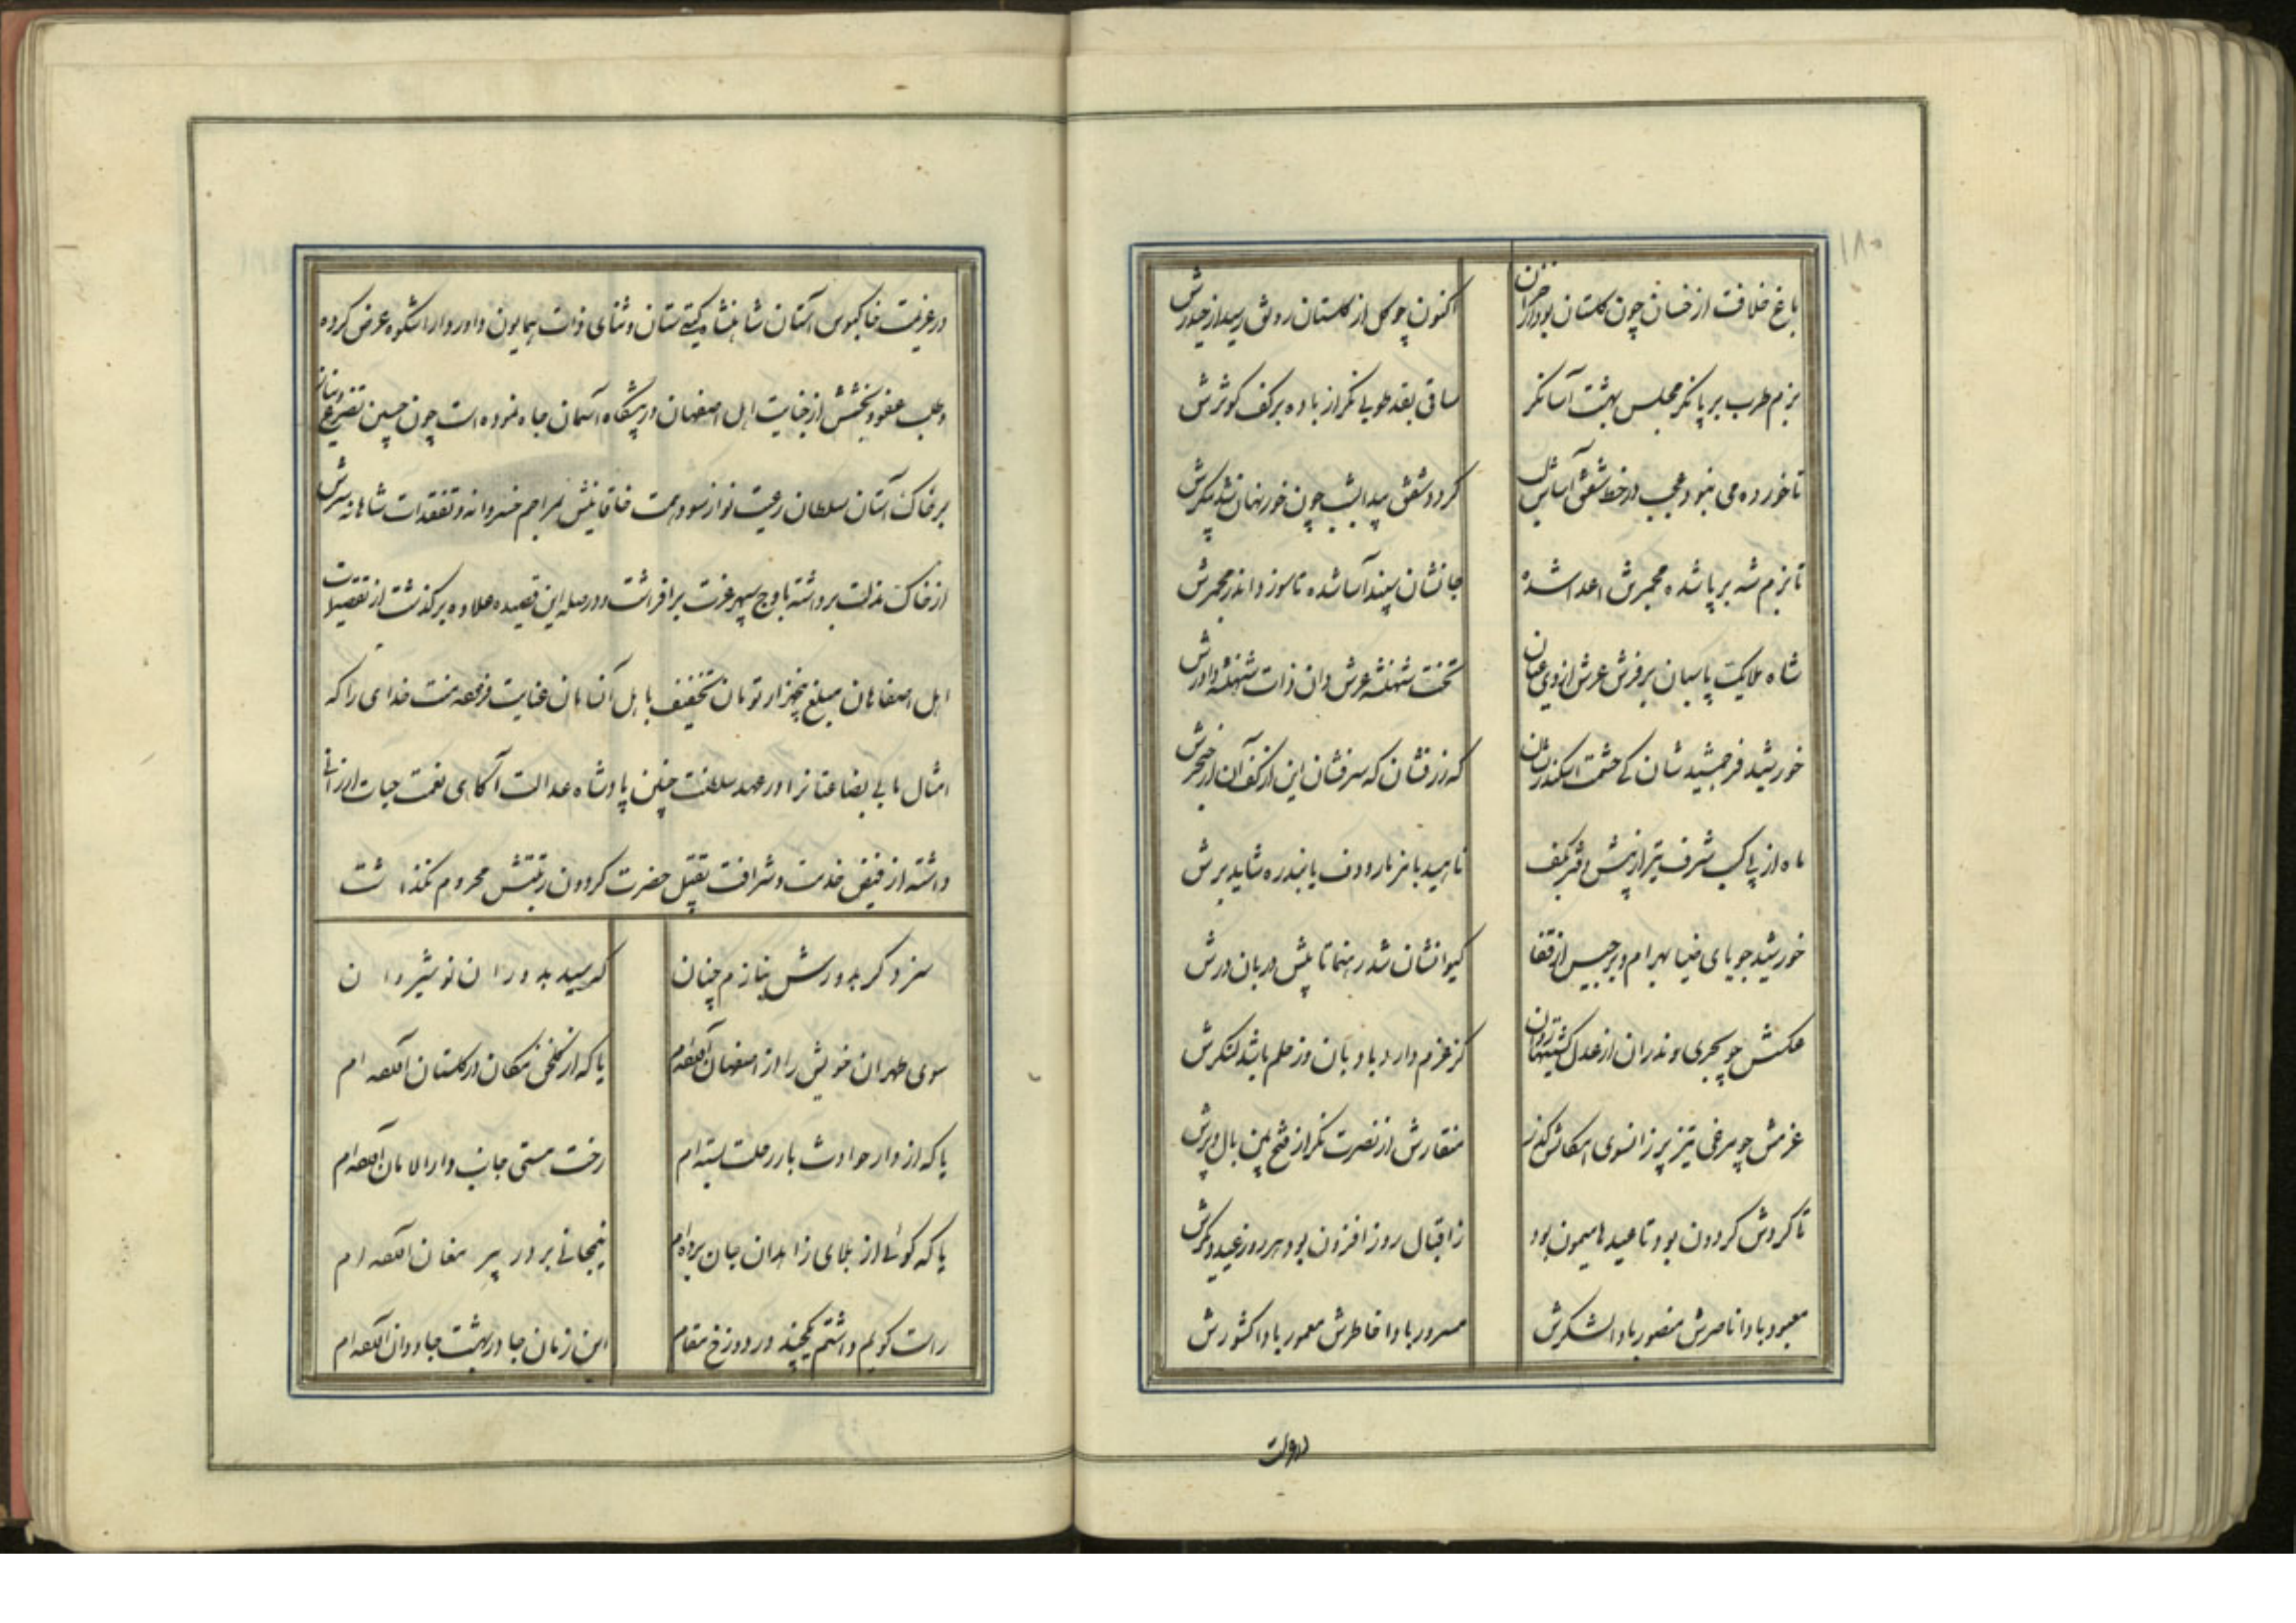 ۱۸۰
باغ خلافت از خسان چون گلستان بود از خزان اکنون چو گل از گلستان رونق رسید از حیدرش
بزم طرب بر پا نگر مجلس بهشت آسا نگر ساقی بقد طوبی نگر از باده بر کف کوثرش
تا خورده می نبود عجب در خط شفق آساش لب گردد شفق پیدا بشب چون خور نهان شد پیکرش
تا بزم شه بر پا شده مجمرش اعدا شده جانشان سپند آسا شده تا سوزد اندر مجمرش
شاه ملایک پاسبان بر فرش عرش از وی عیان تخت شهنشه عرش دان ذات شهنشه داورش
خورشید فر جمشید شان کی حشمت اسکندر نشان که زر فشان که سر فشان این از کف آن از خنجرش
ماه از پی کسب شرف تیر از پیش دفتر بکف ناهید با مزمار و دف یا بند ره شاید برش
خورشید جویای ضیا بهرام و برجیس از قفا کیوانشان شد رهنما تا پیش دربان درش
عکسش چو بحری و ندران از عدل کشتیها روان کز عزم دارد بادبان وز حلم باشد لنگرش
عزمش چو مرغی تیز پر زانسوی امکانش گذر منقارش از نصرت نگر از فتح بین بال و پرش
تا گردش گردون بود تا عیدها میمون بود ز اقبال روز افزون بود هر روز عید دیگرش
معبود بادا ناصرش منصور بادا لشکرش مسرور بادا خاطرش معمور بادا کشورش
در عزیمت خاکبوس آستان شاهنشاه گیتی ستان و ثنای ذات همایون داور دارا شکوه عرض کرده
و طلب عفو و بخشش از جنایت اهل اصفهان در پیشگاه آسمان جاه نموده است چون جبین تضرع
بر خاک آستان سلطان رعیت نواز سود همت خاقانیش بمراحم خسروانه و تفقدات شاهانه سرش
از خاک مذلت برداشته باوج سپهر عزت بر افراشت و در صله این قصیده علاوه بر گذشت از تقصیرات
اهل اصفاهان مبلغ پنجهزار تومان تخفیف باهل آن امان عنایت فرمود منت خدای را که
امثال ما بی بضاعتانرا در عهد سلطنت چنین پادشاه عدالت آگاهی نعمت حیات ارزانی
داشته از فیض خدمت و شرافت تقبیل حضرت گردون رتبتش محروم نگذاشت
سزد گر بدورش بنازم چنان که سید بدوران نوشیروان
سوی طهران خویش را از اصفهان افکنده‌ام یا که از گلخن مکان در گلستان افکنده‌ام
یا که از دار حوادث بار رحلت بسته‌ام رخت هستی جانب دار الامان افکنده‌ام
یا که گوئی از بلای زاهدان جان برده‌ام نیمجانی بر در پیر مغان افکنده‌ام
راست گویم داشتم یکچند در دوزخ مقام این زمان جا در بهشت جاودان افکنده‌ام